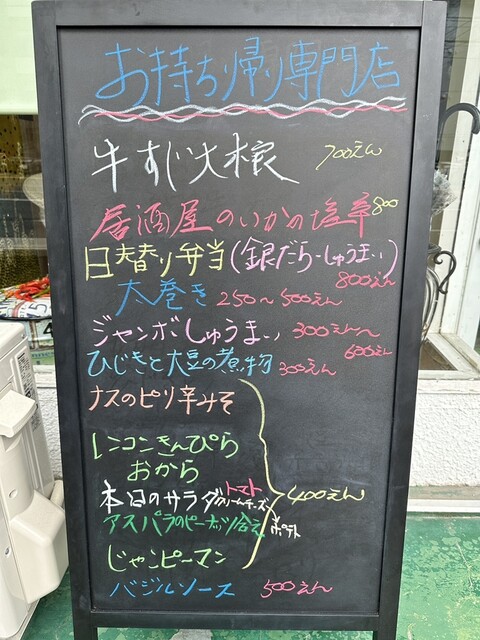 お持ち帰り専門店
牛すじ大根 700えん
居酒屋のいかの塩辛 800
日替り弁当(銀だら・しゅうまい)
800えん
太巻き 250〜500えん
ジャンボしゅうまい 300えん〜
600えん
ひじきと大豆の煮物 300えん
ナスのピリ辛みそ
レンコンきんぴら
おから
400えん
本日のサラダ トマト クリームチーズ ポテト
アスパラのピーナッツ合え
じゃこピーマン
バジルソース 500えん